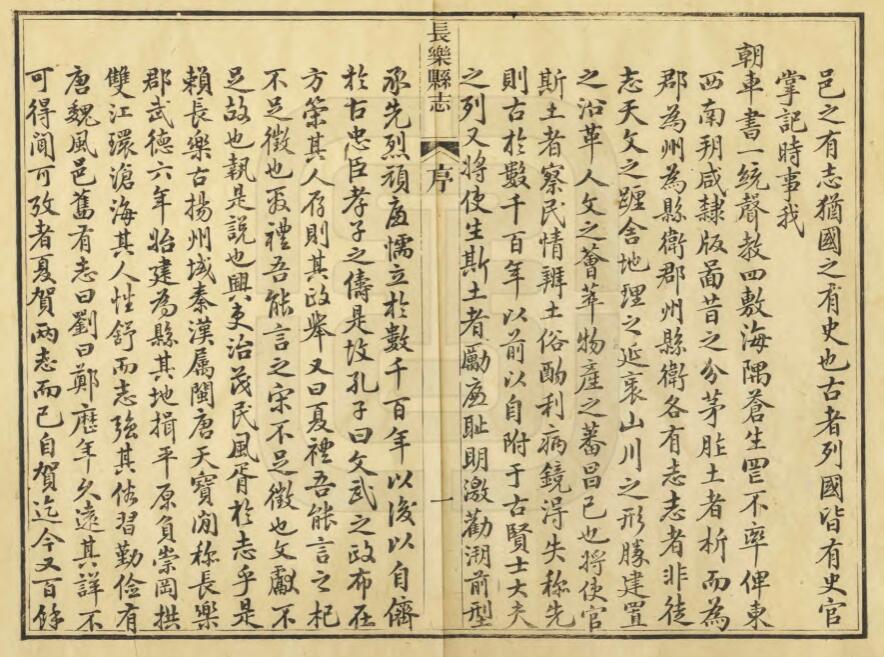 邑之有志猶國之有史也古者列國皆有史官
掌記時事我
朝車書一統聲教四敷海隅蒼生罔不率俾東
西南朔咸隸版啚昔之分茅胙土者析而為
郡為州為縣衛郡州縣衛各有志志者非徒
志天文之躔舍地理之延袤山川之形勝建置
之沿革人文之薈萃物產之蕃昌已也將使官
斯土者察民情辨土俗酌利病鏡得失稱先
則古於數千百年以前以自附于古賢士大夫
之列又將使生斯土者勵廉恥明激勸溯前型
長樂縣志
序
一
承先烈頑廉懦立於數千百年以後以自儕
於古忠臣孝子之儔是故孔子曰文武之政布在
方策其人存則其政舉又曰夏禮吾能言之杞
不足徵也殷禮吾能言之宋不足徵也文獻不
足故也執是說也興吏治茂民風胥於志乎是
賴長樂古揚州域秦漢屬閩唐天寶間稱長樂
郡武德六年始建為縣其地揖平原負崇岡拱
雙江環滄海其人性舒而志強其俗習勤儉有
唐魏風邑舊有志曰劉曰鄭歷年久遠其詳不
可得聞可攷者夏賀兩志而已自賀迄今又百餘